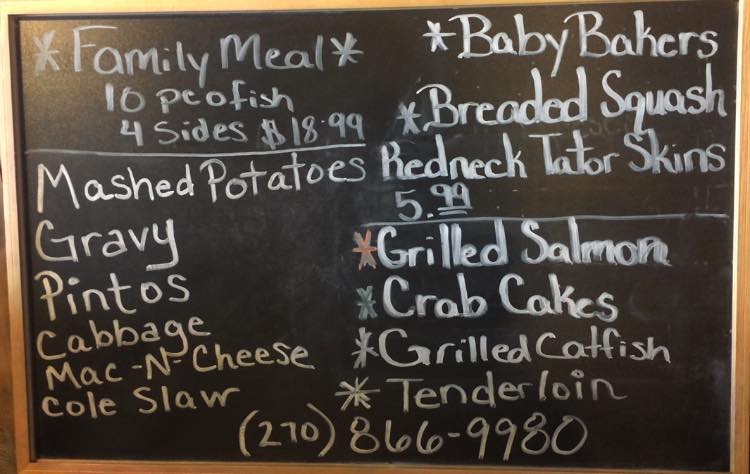 *Family Meal*
10 pc of ish
4 Sides $18.99
Mashed Potatoes
Gravy
Pintos
Cabbage
Mac-N-Cheese
Cole Slaw
*Baby Bakers
*Breaded Squash
Redneck Tator Skins
5.99
*Grilled Salmon
*Crab Cakes
*Grilled Catfish
*Tenderloin
(270) 866-9980